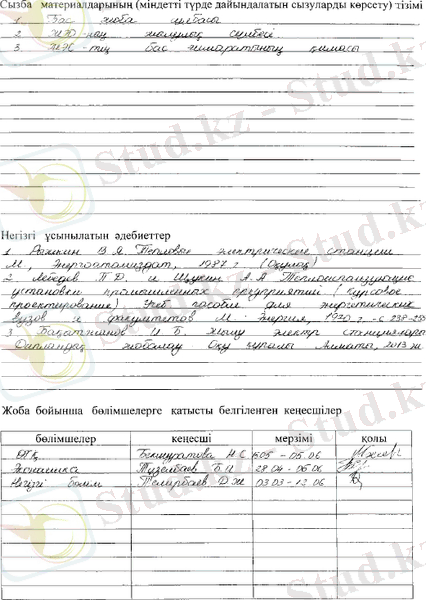 Сызба материалдарының (міндетті түрде дайындалатын сызуларды көрсету) тізімі
1. Бас жоба схемасы
2. ЖЭО-ның жылулық сұлбасы
3. ЖЭС-тің бас ғимаратының қимасы
Негізгі ұсынылатын әдебиеттер
1 Рыжкин В.Я. Тепловые электрические станции
М., Энергоатомиздат, 1987 г. (Оқулық)
2. Лебедев П.Д. и Щукин А.А. Теплоиспользующие
установки промышленных предприятий (курсовое
проектирование). Учеб. пособие для энергетических
вузов и факультетов М. Энергия, 1970 г. - с 238-
3 И.Б. жылу электр станциялары
жобалау Оқу құралы Алматы, 2013 ж
Жоба бойынша бөлімшелерге қатысты белгіленген кеңесшілер
бөлімшелер кеңесші мерзімі қолы
Бекмуратова Н С 05 - 05.06
Экономика Тузелбаев Б.И 28.04 - 06.06
Негізгі бөлім Темирбаев Д.Ж 03.03 - 12.06
Stud.kz - Stud.kz
Stud.kz - Stud.kz
Stud.kz - Stud.kz